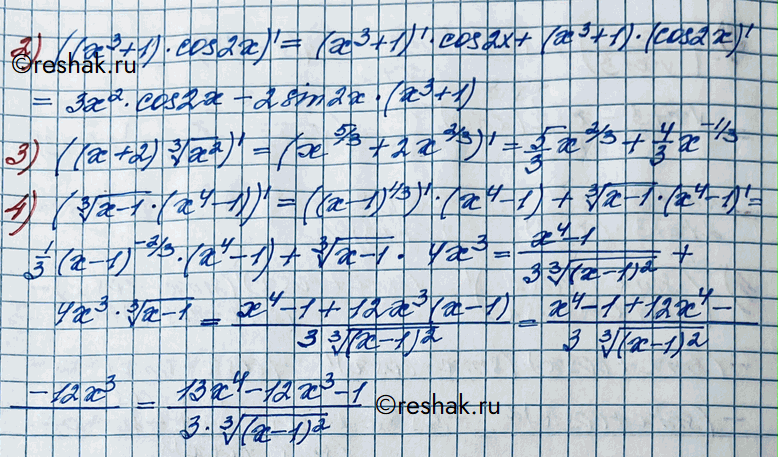 2) ((x³+1)·cos2x)' = (x³+1)'·cos2x + (x³+1)·(cos2x)'
©reshak.ru
= 3x²·cos2x − 2sin2x·(x³+1)
3) ((x+2)∛(x²))' = (x^(5/3) + 2x^(2/3))' = 5/3 x^(2/3) + 4/3 x^(−1/3)
4) (∛(x−1)·(x⁴−1))' = ((x−1)^(1/3))'·(x⁴−1) + ∛(x−1)·(x⁴−1)' =
1/3 (x−1)^(−2/3)·(x⁴−1) + ∛(x−1)· 4x³ = (x⁴−1)/(3∛((x−1)²)) +
4x³·∛(x−1) = (x⁴−1+12x³(x−1))/(3∛((x−1)²)) = (x⁴−1+12x⁴−)/(3∛((x−1)²))
−12x³ = (13x⁴−12x³−1)/(3·∛((x−1)²))
©reshak.ru